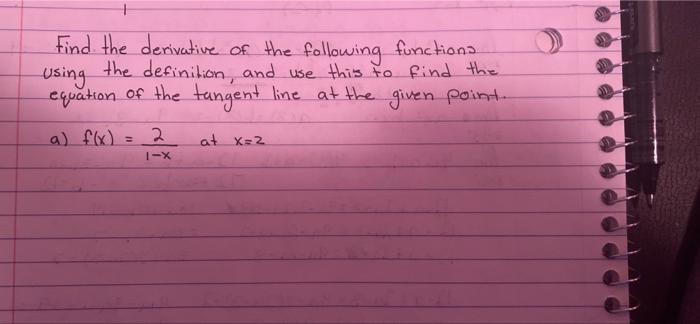 Find the derivative of the following functions
using the definition, and use this to find the
equation of the tangent line at the given point.
a) f(x) = 2/(1-x) at x=2